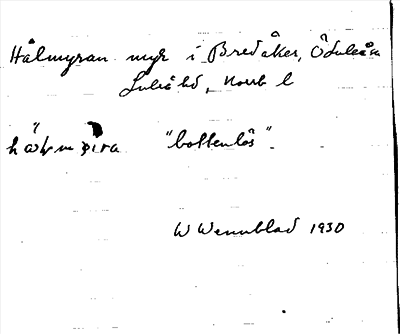 Hålmyran myr i Bredåker, ÖLuleå
Luleå hd, Norrb l
"bottenlös".
W Wennblad 1930